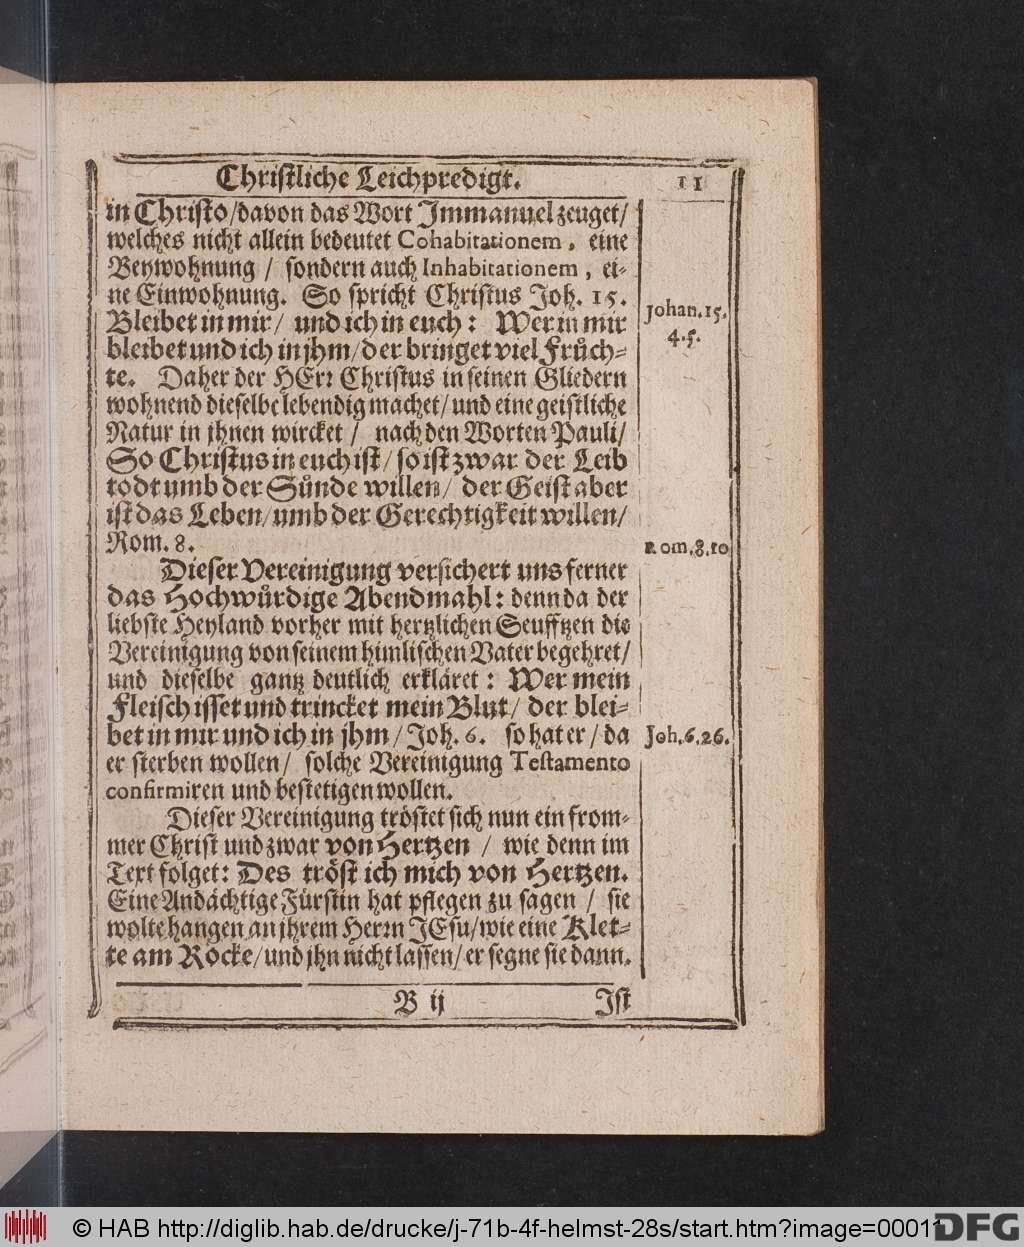 Christliche Leichpredigt. 11
in Christo/davon das Wort Immanuel zeuget/
welches nicht allein bedeutet Cohabitationem, eine
Beywohnung / sondern auch Inhabitationem, ei-
ne Einwohnung. So spricht Christus Joh. 15.
Bleibet in mir/ und ich in euch: Wer in mir
Johan.15.
bleibet und ich in jhm/der bringet viel Früch-
4.5.
te. Daher der HErr Christus in seinen Gliedern
wohnend dieselbe lebendig machet/und eine geistliche
Natur in jhnen wircket / nach den Worten Pauli/
So Christus in euch ist/so ist zwar der Leib
todt umb der Sünde willen/ der Geist aber
ist das Leben/umb der Gerechtigkeit willen/
Rom. 8.
Rom.8.10
Dieser Vereinigung versichert uns ferner
das Hochwürdige Abendmahl: denn da der
liebste Heyland vorher mit hertzlichen Seufftzen die
Vereinigung von seinem himlischen Vater begehret/
und dieselbe gantz deutlich erkläret: Wer mein
Fleisch isset und trincket mein Blut/ der blei-
bet in mir und ich in jhm/Joh. 6. so hat er/da
Joh.6.26.
er sterben wollen/ solche Vereinigung Testamento
confirmiren und bestetigen wollen.
Dieser Vereinigung tröstet sich nun ein from-
mer Christ und zwar von Hertzen / wie denn im
Text folget: Des tröst ich mich von Hertzen.
Eine Andächtige Fürstin hat pflegen zu sagen / sie
wolte hangen an jhrem Herrn JEsu/wie eine Klet-
te am Rocke/und jhn nicht lassen/er segne sie dann.
B ij Ist
© HAB http://diglib.hab.de/drucke/j-71b-4f-helmst-28s/start.htm?image=00011
DFG